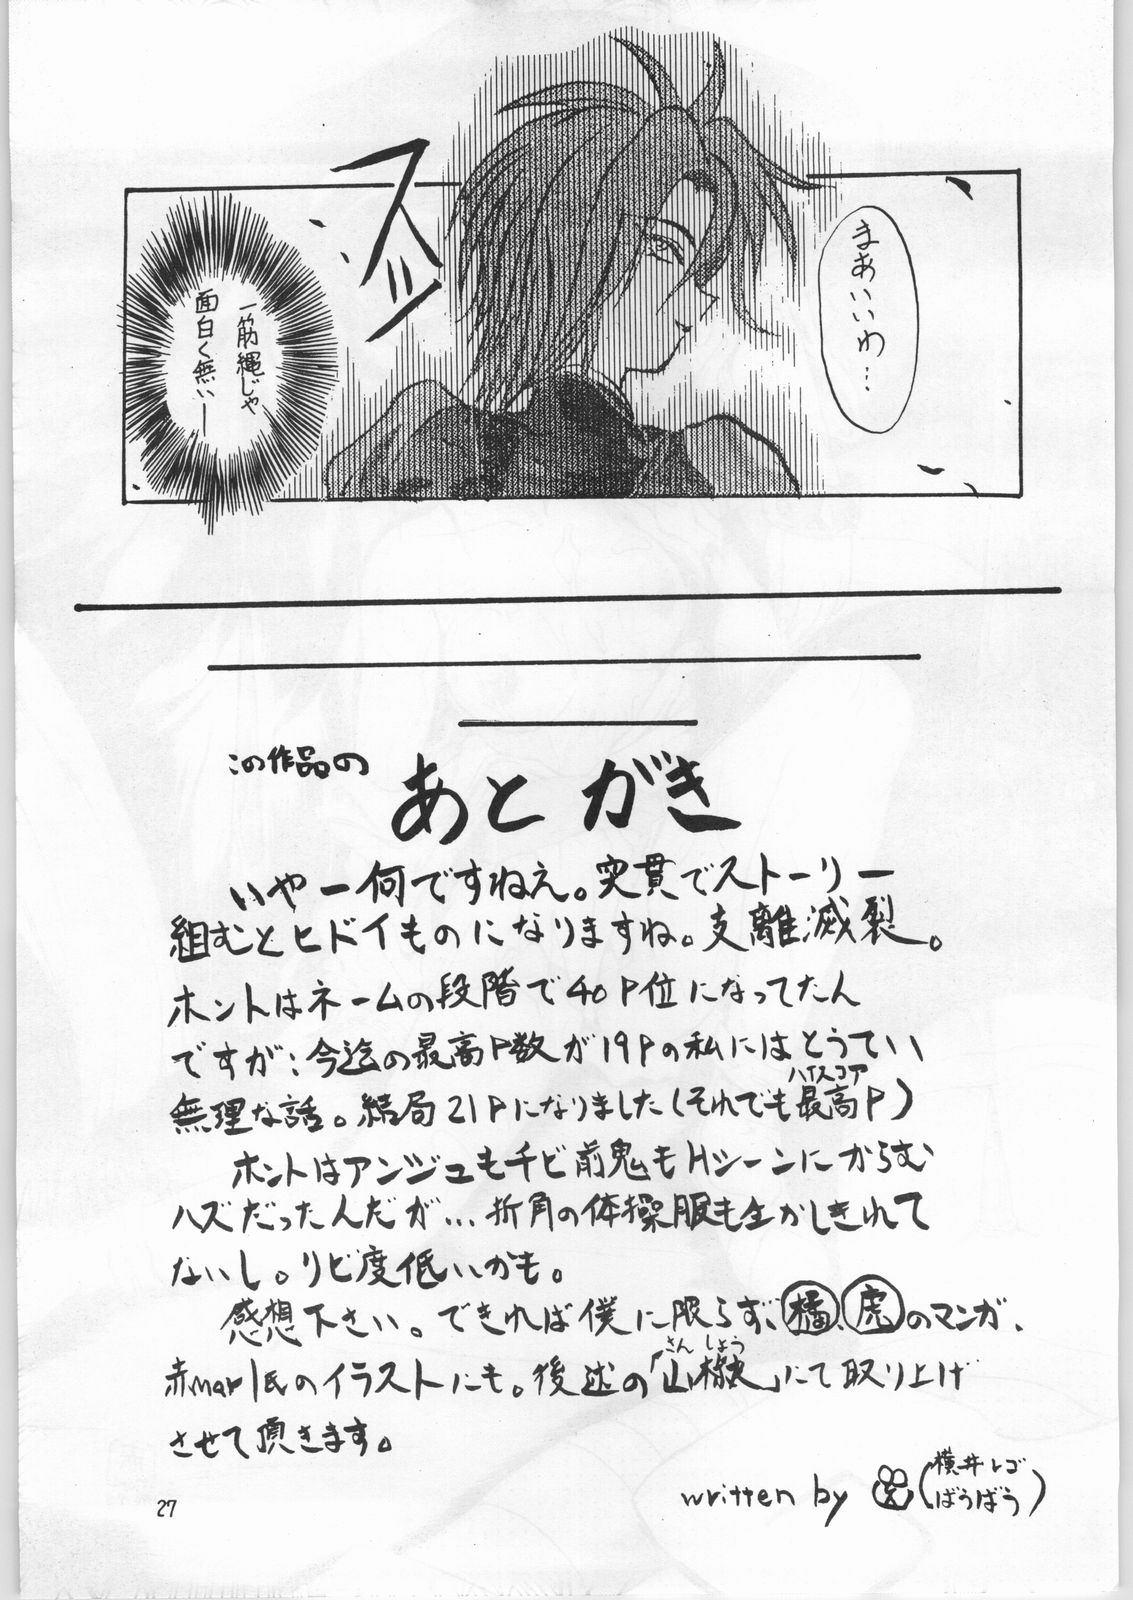 まあいいわ…
スッ
一筋縄じゃ
面白く無いー
この作品の
あとがき
いやー何ですねえ。突貫でストーリー
組むとヒドイものになりますね。支離滅裂。
ホントはネームの段階で40P位になってたん
ですが…今迄の最高P数が19Pの私にはとうてい
ハイスコア
無理な話。結局21Pになりました(それでも最高P)
ホントはアンジュも千ビ前鬼もHシーンにからむ
ハズだったんだが…折角の体操服も生かしきれて
ないし。リビ度低いかも。
感想下さい。できれば僕に限らず、橘、虎のマンガ、
さんしょう
赤mar1氏のイラストにも。後述の「山椒」にて取り上げ
させて頂きます。
written by
横井レゴ
ばうばう
27